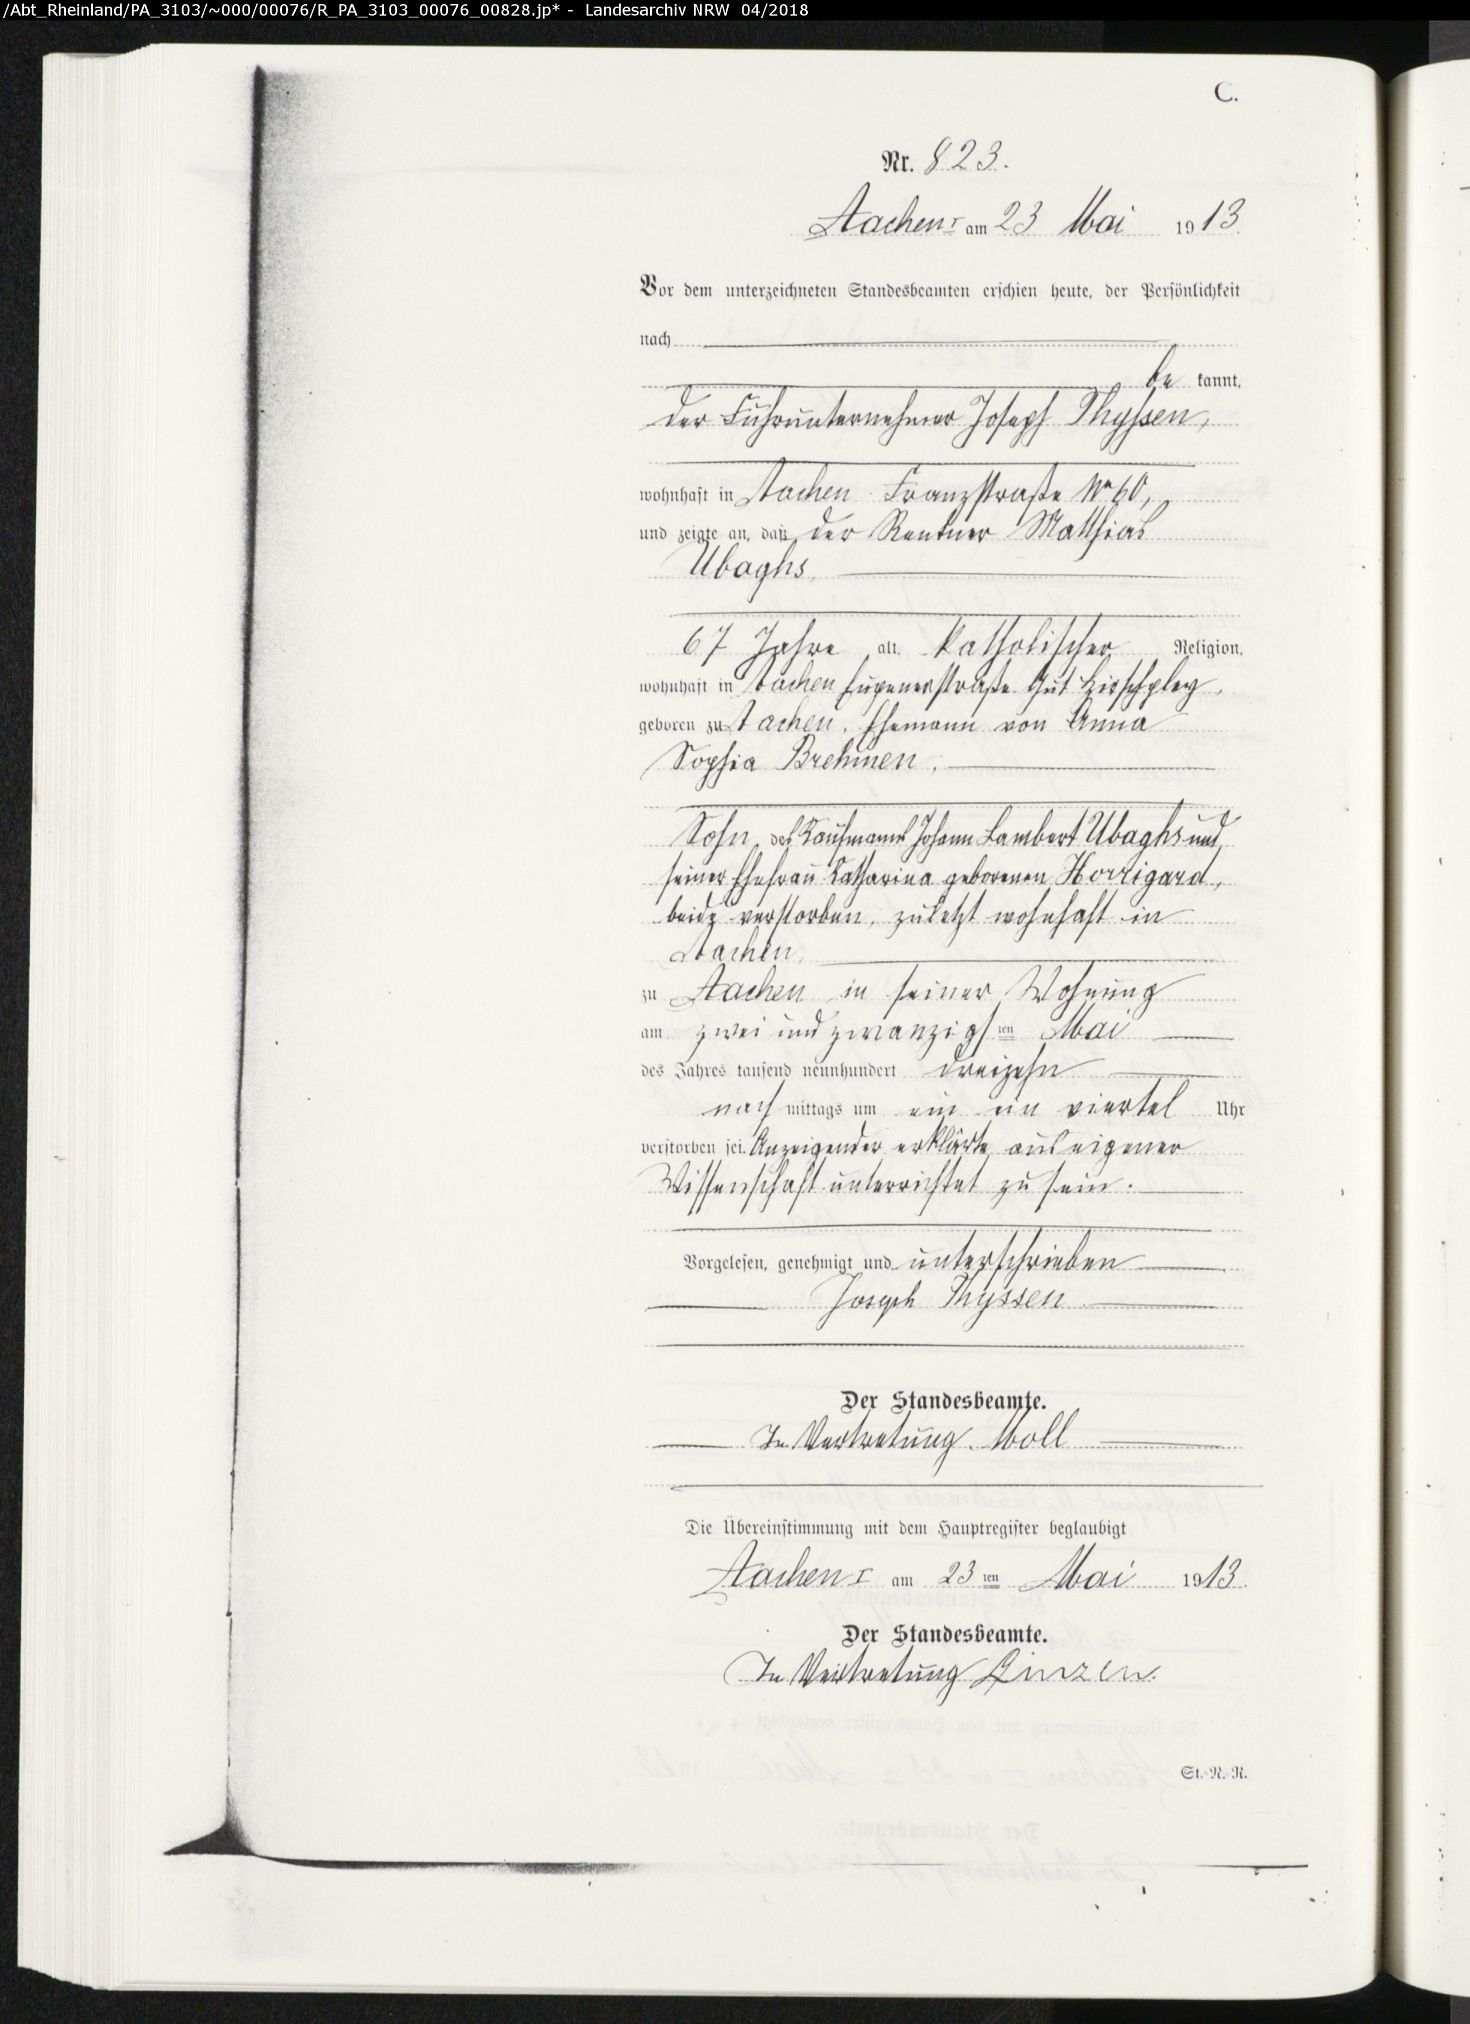 /Abt_Rheinland/PA_3103/~000/00076/R_PA_3103_00076_00828.jp* - Landesarchiv NRW 04/2018
C.
Nr. 823.
Aachen I am 23 Mai 1913.
Vor dem unterzeichneten Standesbeamten erschien heute, der Persönlichkeit
nach
be kannt,
der Fuhrunternehmer Joseph Thyssen,
wohnhaft in Aachen Franzstraße No 60,
und zeigte an, daß der Rentner Matthias
Ubaghs,
67 Jahre alt, katholischer Religion,
wohnhaft in Aachen Eupenerstraße Gut
geboren zu Aachen, Ehemann von Anna
Sophia Brehmen,
Sohn des Kaufmanns Johann Lambert Ubaghs und
seiner Ehefrau Katharina geborenen Horrigard,
beide verstorben, zuletzt wohnhaft in
Aachen,
zu Aachen in seiner Wohnung
am zwei und zwanzigsten Mai
des Jahres tausend neunhundert dreizehn
nach mittags um ein ein viertel Uhr
verstorben sei. Anzeigender erklärte aus eigener
Wissenschaft unterrichtet zu sein.
Vorgelesen, genehmigt und unterschrieben
Joseph Thyssen
Der Standesbeamte.
In Vertretung. Moll
Die Übereinstimmung mit dem Hauptregister beglaubigt
Aachen I am 23 ten Mai 1913.
Der Standesbeamte.
In Vertretung Linzen.
St.-N.-R.